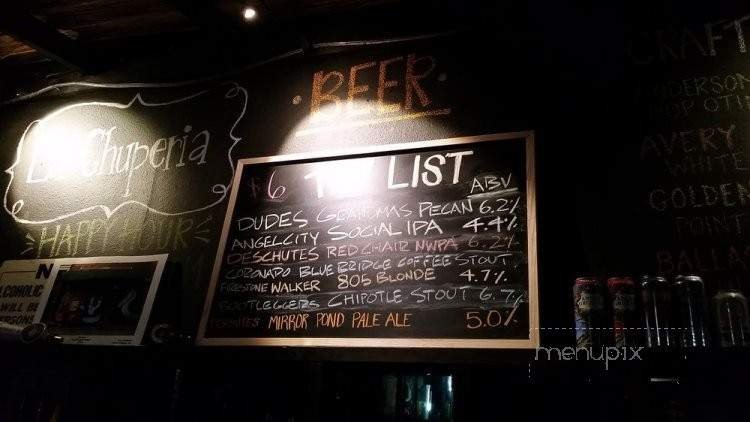 Chuperia
HAPPY HOUR
N
LCOHOLIC
WILL BE
BEER
$6 LIST
ABV
DUDES GRANDMAS PECAN 6.2%
ANGELCITY SOCIAL IPA 4.4%
DESCHUTES RED CHAIR NWPA 6.2%
CORONADO BLUE BRIDGE COFFEE STOUT
FIRESTONE WALKER 805 BLONDE 4.7%
BOOTLEGGERS CHIPOTLE STOUT 6.7%
MIRROR POND PALE ALE 5.0%
CRAFT
ANDERSON
HOP OTI
AVERY
WHITE
GOLDEN
POINT
BALLA
menupix